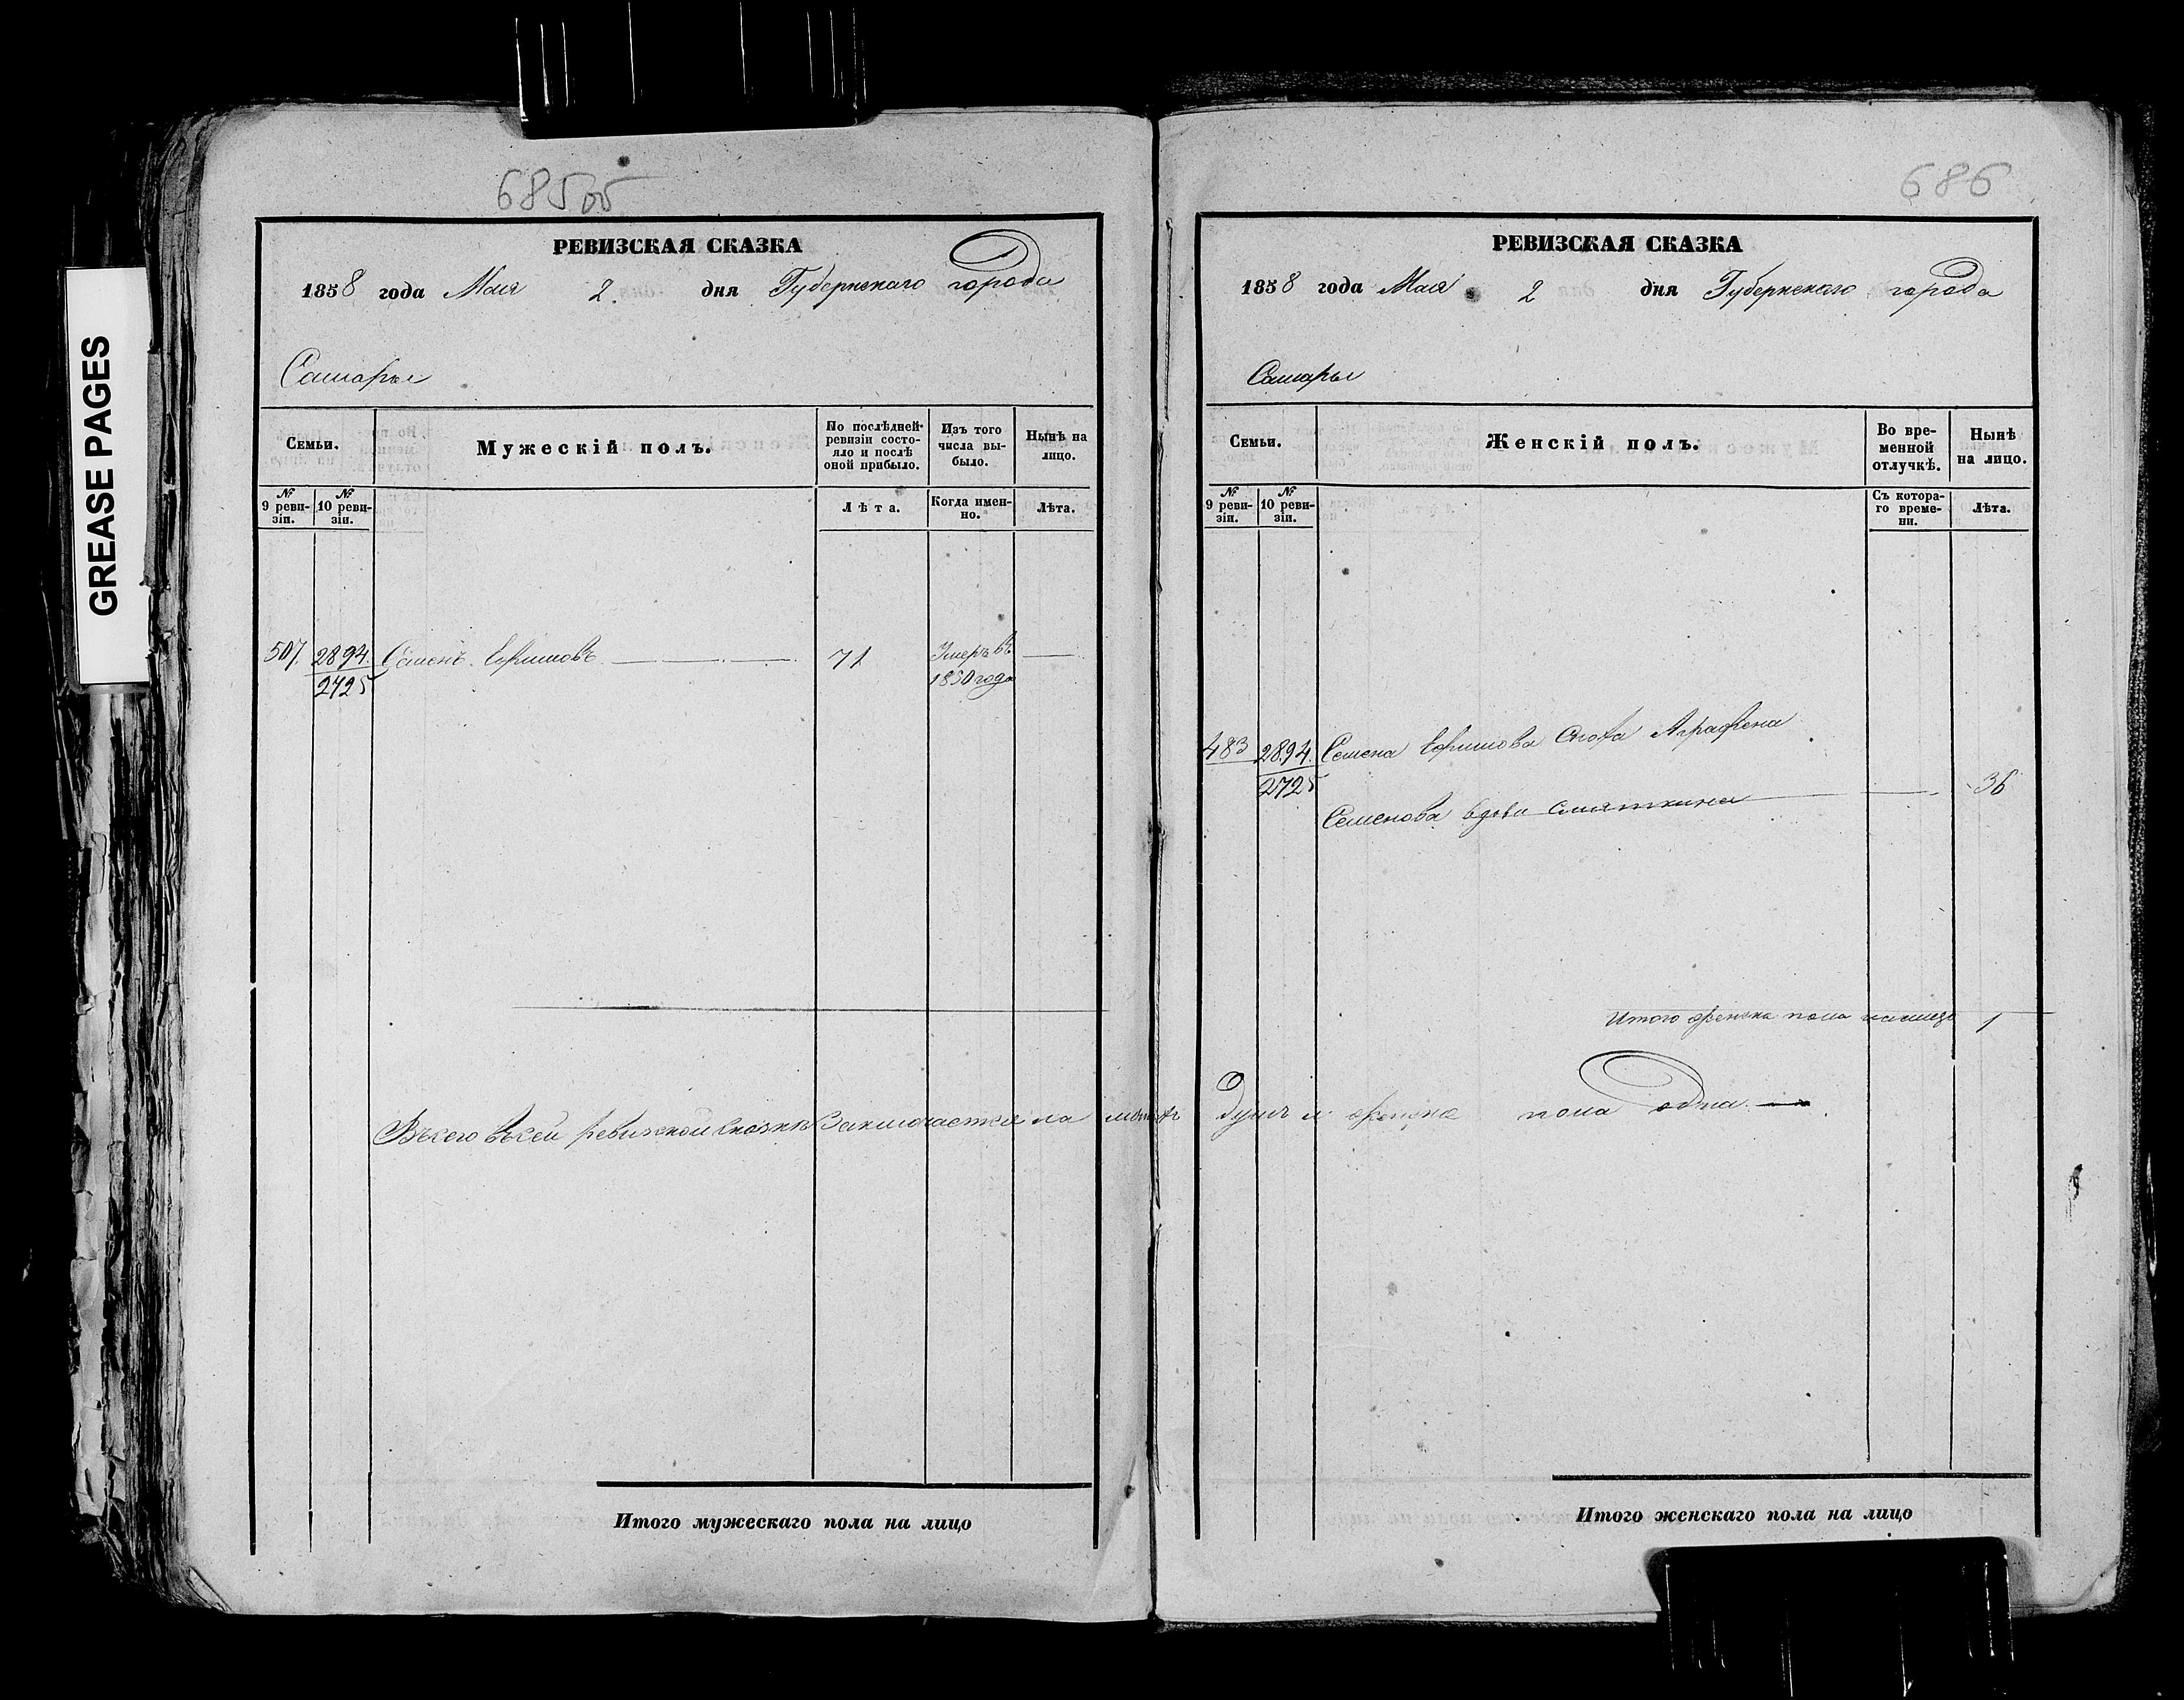 GREASE PAGES
685об
РЕВИЗСКАЯ СКАЗКА
1858 года Мая 2. дня Губернскаго города
Самары
Семьи.
Мужескій полъ.
По послѣдней ревизіи состо-
яло и послѣ
оной прибыло.
Изъ того
числа вы-
было.
Нынѣ на
лицо.
№
9 реви-
зіи.
№
10 реви-
зіи.
Лѣта.
Когда имен-
но.
Лѣта.
507. 2894. Семенъ Ефимовъ 71 Умеръ въ
2725 1850 года
Въ сей ревизской сказкѣ заключается на
Итого мужескаго пола на лицо
686
РЕВИЗСКАЯ СКАЗКА
1858 года Мая 2 дня Губернскаго города
Самары
Семьи.
Женскій полъ.
Во вре-
менной
отлучкѣ.
Нынѣ
на лицо.
№
9 реви-
зіи.
№
10 реви-
зіи.
Съ котора-
го време-
ни.
Лѣта.
483 2894. Семена Ефимова сноха Аграфена
2725
Семенова вдова 36
Итого женска пола налицо 1
душъ и женска пола одна
Итого женскаго пола на лицо